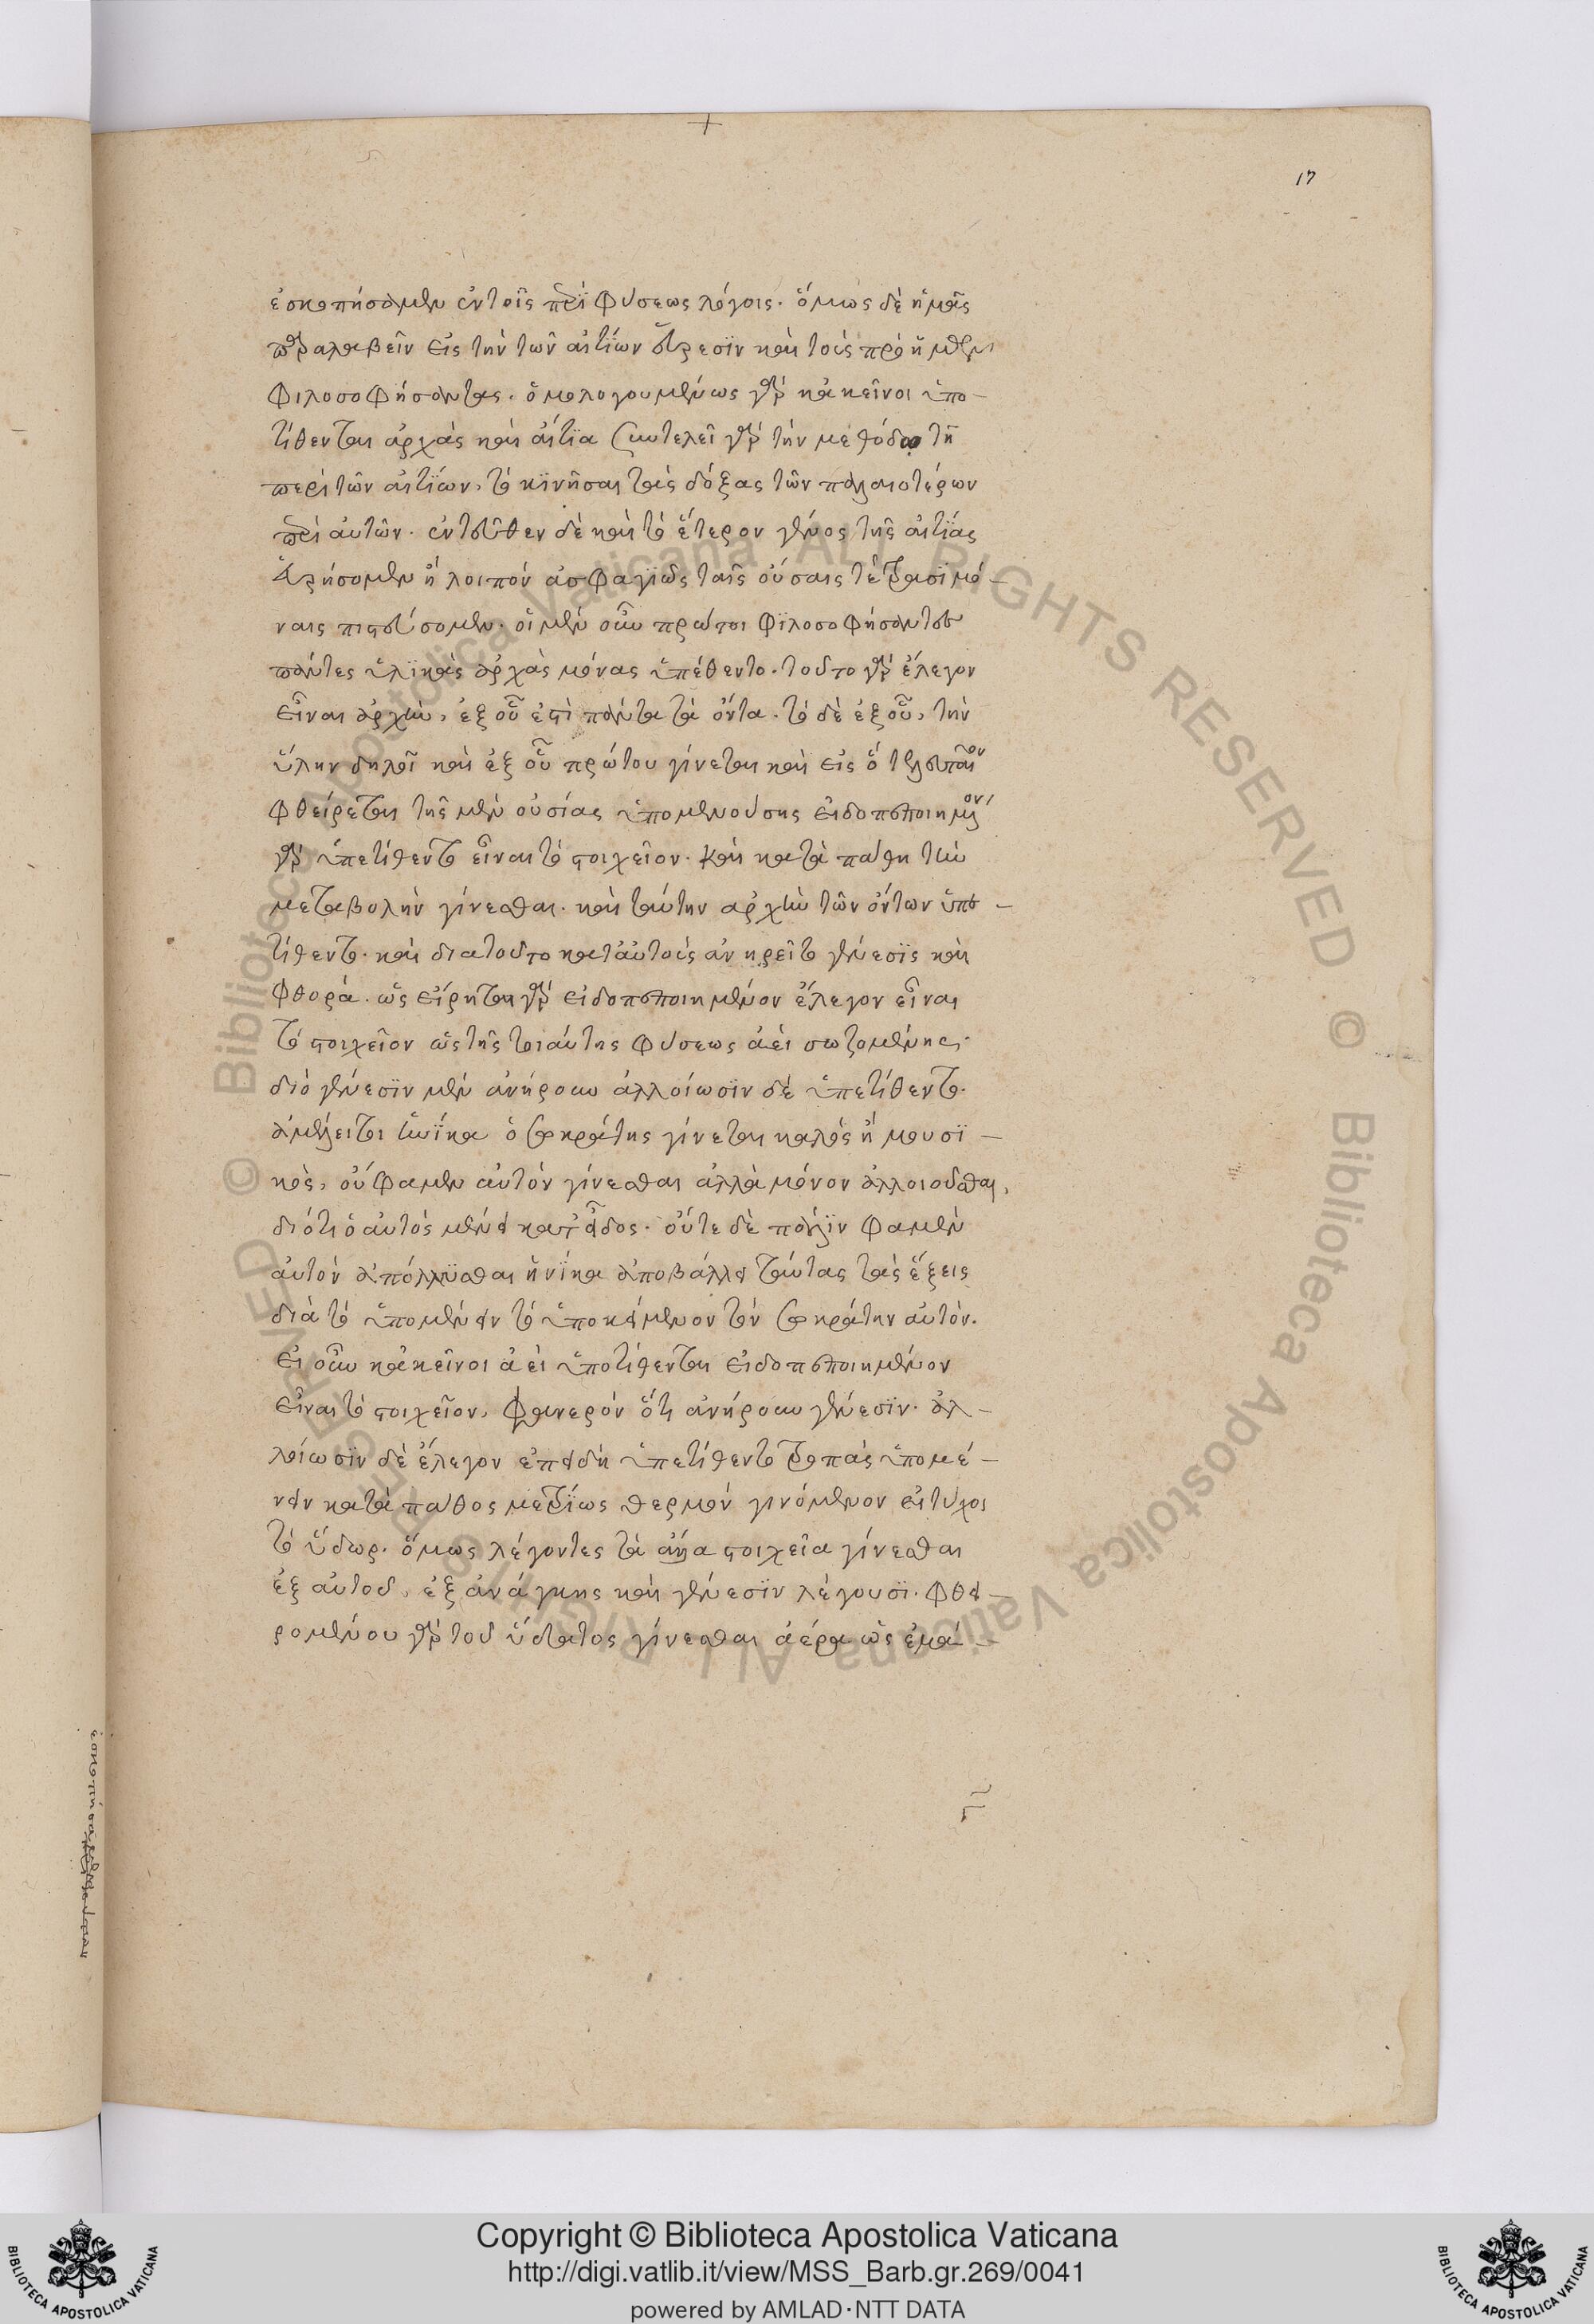 17
ἐσκοπήσαμεν ἐν τοῖς περὶ φύσεως λόγοις. ὅμως δὲ ἡμᾶς
παραλαβεῖν εἰς τὴν τῶν αἰτίων εὕρεσιν καὶ τοὺς πρὸ ἡμῶν
φιλοσοφήσαντας. ὁμολογουμένως γὰρ κἀκεῖνοι ὑπο-
τίθενται ἀρχὰς καὶ αἴτια συντελεῖ γὰρ τὴν μεθόδω τῆ
περὶ τῶν αἰτίων, τὸ κινῆσαι τὰς δόξας τῶν παλαιοτέρων
περὶ αὐτῶν. ἐντεῦθεν δὲ καὶ τὸ ἕτερον γένος τῆς αἰτίας
εὑρήσομεν ἢ λοιπὸν ἀσφαλῶς ταῖς οὔσαις τέτρασι μό-
ναις πιστεύσομεν. οἱ μὲν οὖν πρῶτοι φιλοσοφήσαντες
πάντες ὑλικὰς ἀρχὰς μόνας ὑπέθεντο. τοῦτο γὰρ ἔλεγον
εἶναι ἀρχὴν, ἐξ οὗ ἐστὶ πάντα τὰ ὄντα. τὸ δὲ ἐξ οὗ, τὴν
ὕλην δηλοῖ καὶ ἐξ οὗ πρώτου γίνεται καὶ εἰς ὃ τελευταῖον
φθείρεται τῆς μὲν οὐσίας ὑπομενούσης εἰδοπεποιημένον
γὰρ ὑπετίθεντο εἶναι τὸ στοιχεῖον. καὶ κατὰ πάθη τὴν
μεταβολὴν γίνεσθαι. καὶ ταύτην ἀρχὴν τῶν ὄντων ὑπε-
τίθεντο. καὶ διὰ τοῦτο κατ' αὐτοὺς ἀνῃρεῖτο γένεσις καὶ
φθορά. ὡς εἴρηται γὰρ εἰδοπεποιημένον ἔλεγον εἶναι
τὸ στοιχεῖον ὡς τῆς τοιαύτης φύσεως ἀεὶ σωζομένης.
διὸ γένεσιν μὲν ἀνήρουν ἀλλοίωσιν δὲ ὑπετίθεντο.
ἀμέλειτοι ἡνίκα ὁ Σωκράτης γίνεται καλὸς ἢ μουσι-
κὸς, οὔ φαμεν αὐτὸν γίνεσθαι ἀλλὰ μόνον ἀλλοιοῦσθαι,
διότι ὁ αὐτὸς μένει κατ' εἶδος. οὔτε δὲ πάλιν φαμὲν
αὐτὸν ἀπόλλυσθαι ἡνίκα ἀποβάλλει ταύτας τὰς ἕξεις
διὰ τὸ ὑπομένειν τὸ ὑποκείμενον τὸν Σωκράτην αὐτὸν.
εἰ οὖν κἀκεῖνοι ἀεὶ ὑποτίθενται εἰδοπεποιημένον
εἶναι τὸ στοιχεῖον, φανερὸν ὅτι ἀνήρουν γένεσιν. ἀλ-
λοίωσιν δὲ ἔλεγον ἐπειδὴ ὑπετίθεντο τροπὰς ὑπομέ-
νειν κατὰ πάθος μετρίως θερμὸν γινόμενον εἰ τύχοι
τὸ ὕδωρ. ὅμως λέγοντες τὰ ἄλλα στοιχεῖα γίνεσθαι
ἐξ αὐτοῦ, ἐξ ἀνάγκης καὶ γένεσιν λέγουσι. φθει-
ρομένου γὰρ τοῦ ὕδατος γίνεσθαι ἀέρα ὡς ἐμά-
© Biblioteca Apostolica Vaticana ALL RIGHTS RESERVED © Biblioteca Apostolica Vaticana ALL RIGHTS RESERVED
Copyright © Biblioteca Apostolica Vaticana
http://digi.vatlib.it/view/MSS_Barb.gr.269/0041
powered by AMLAD·NTT DATA
BIBLIOTECA APOSTOLICA VATICANA
BIBLIOTECA APOSTOLICA VATICANA